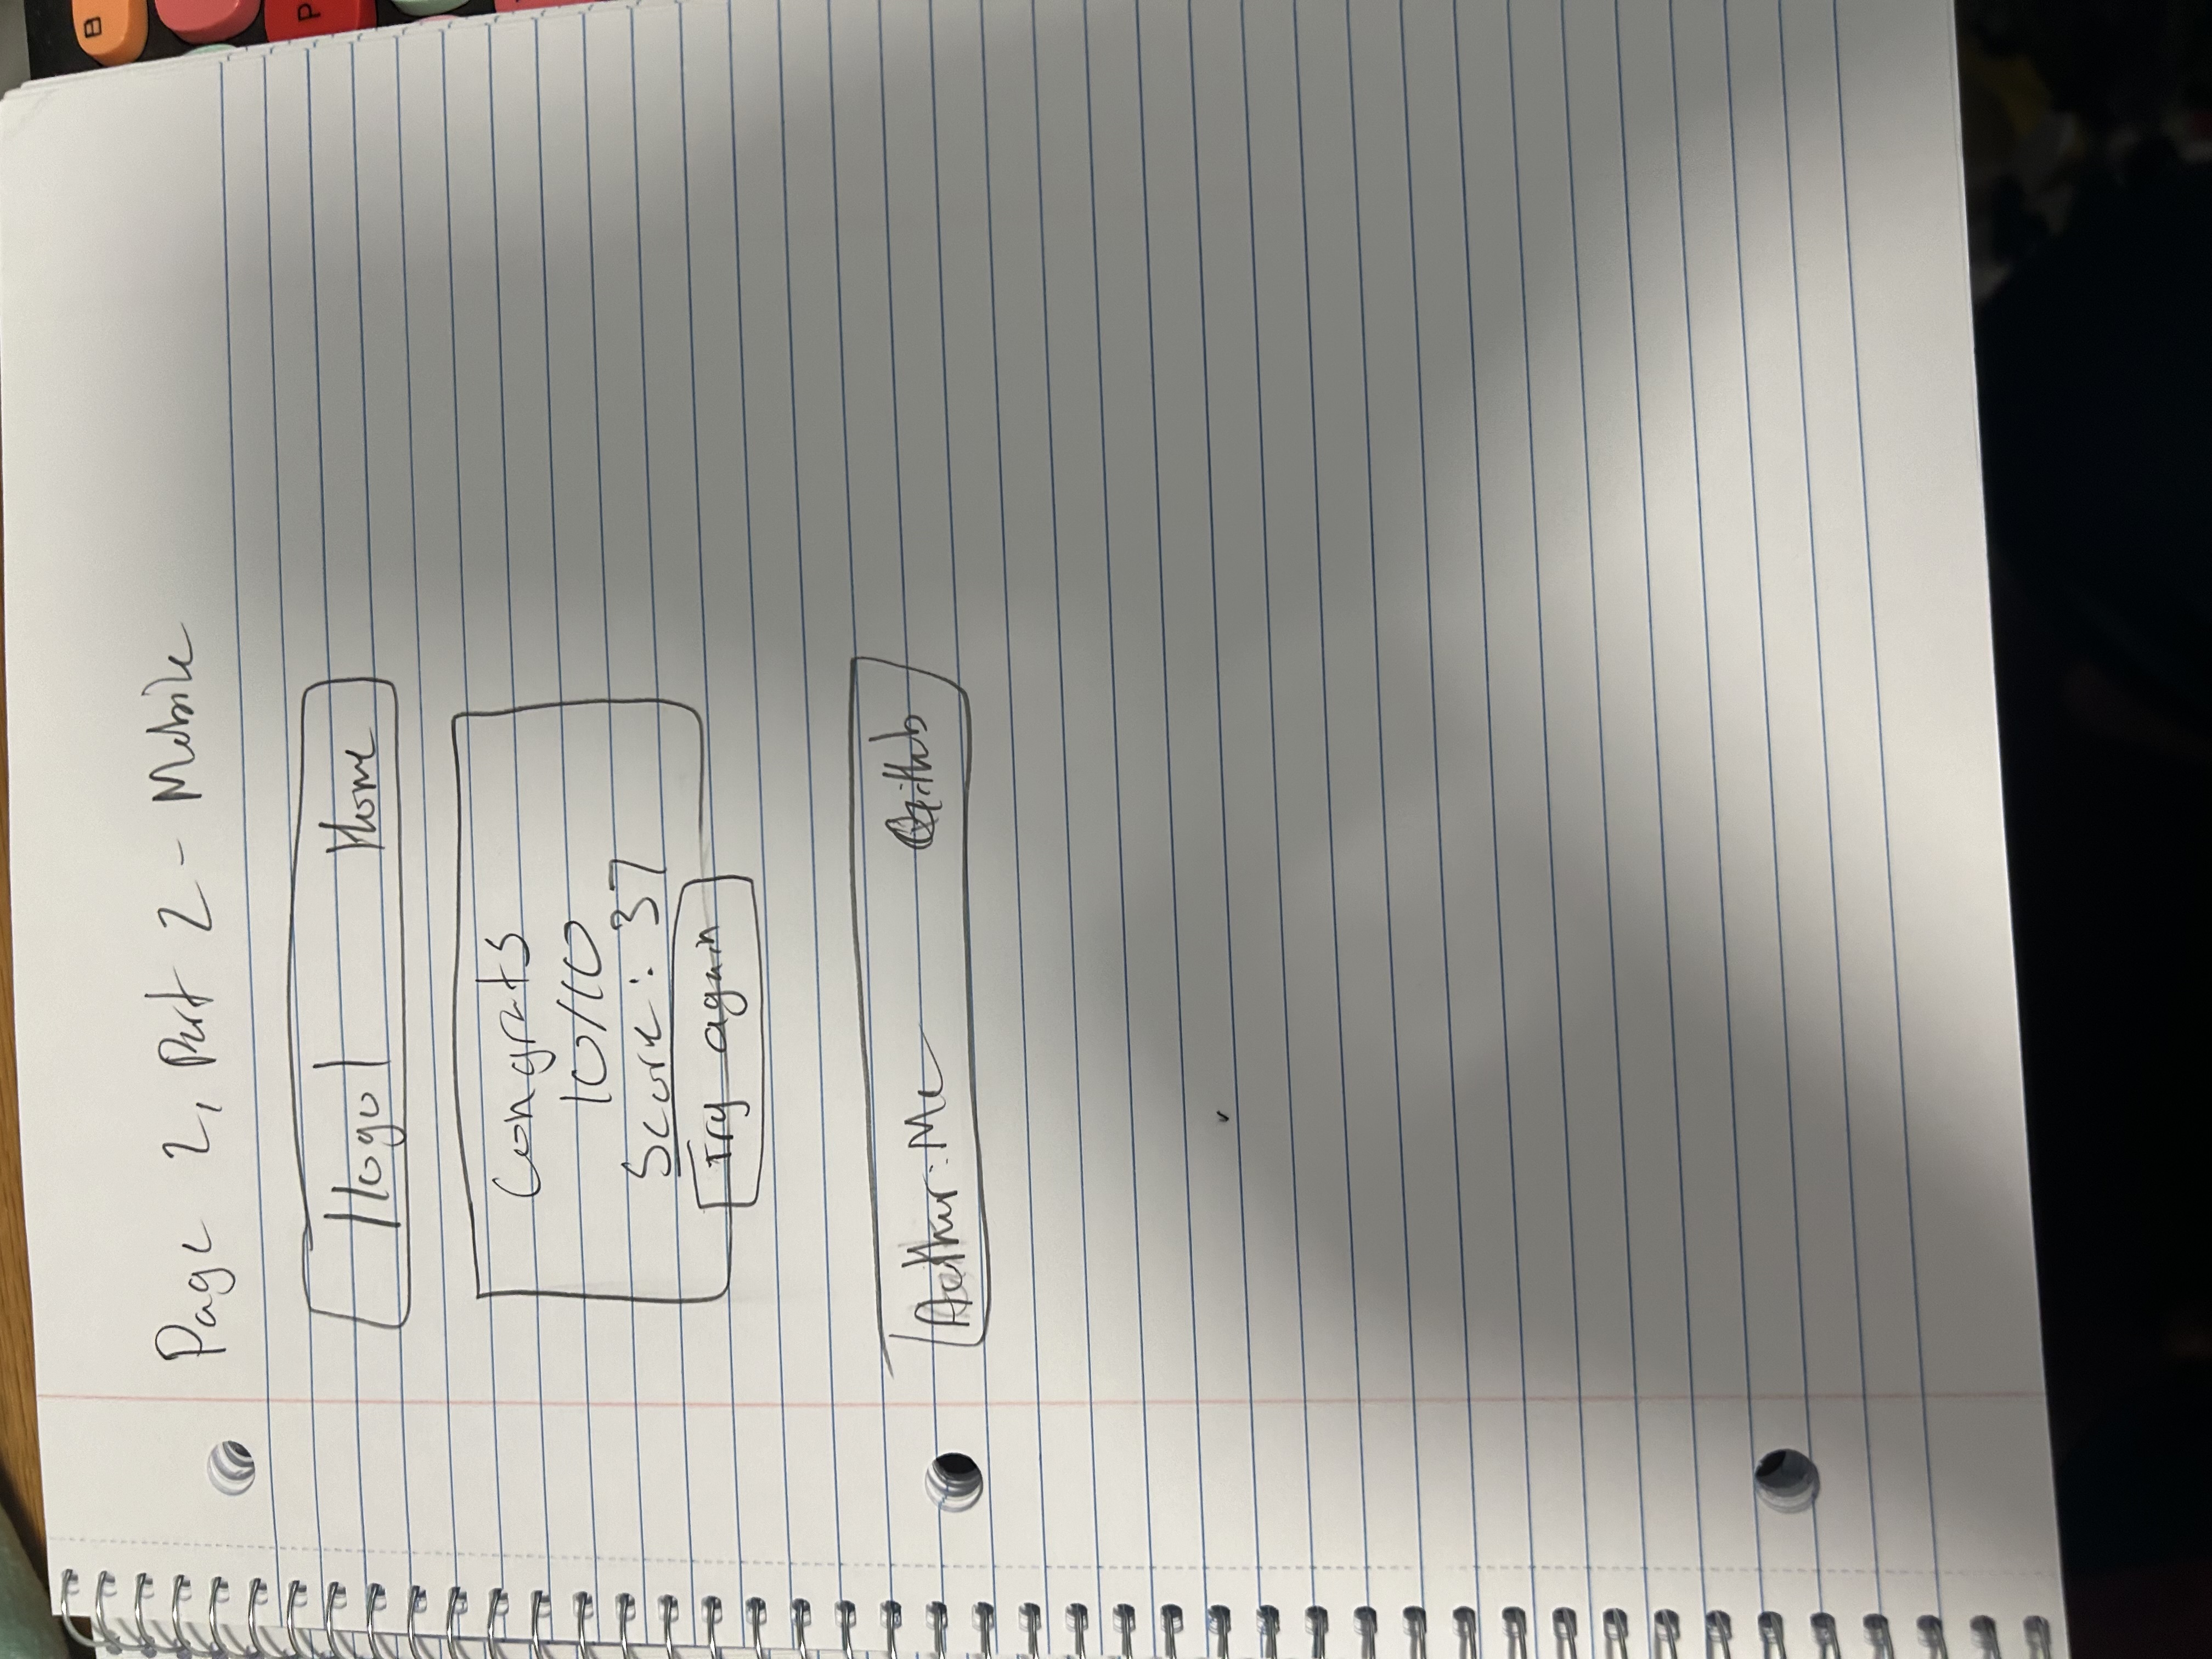 Page 2, Part 2 - Mobile
|logo| Home
Congrats
10/10
Score: 37
Try again
Author: Me Github
B
P